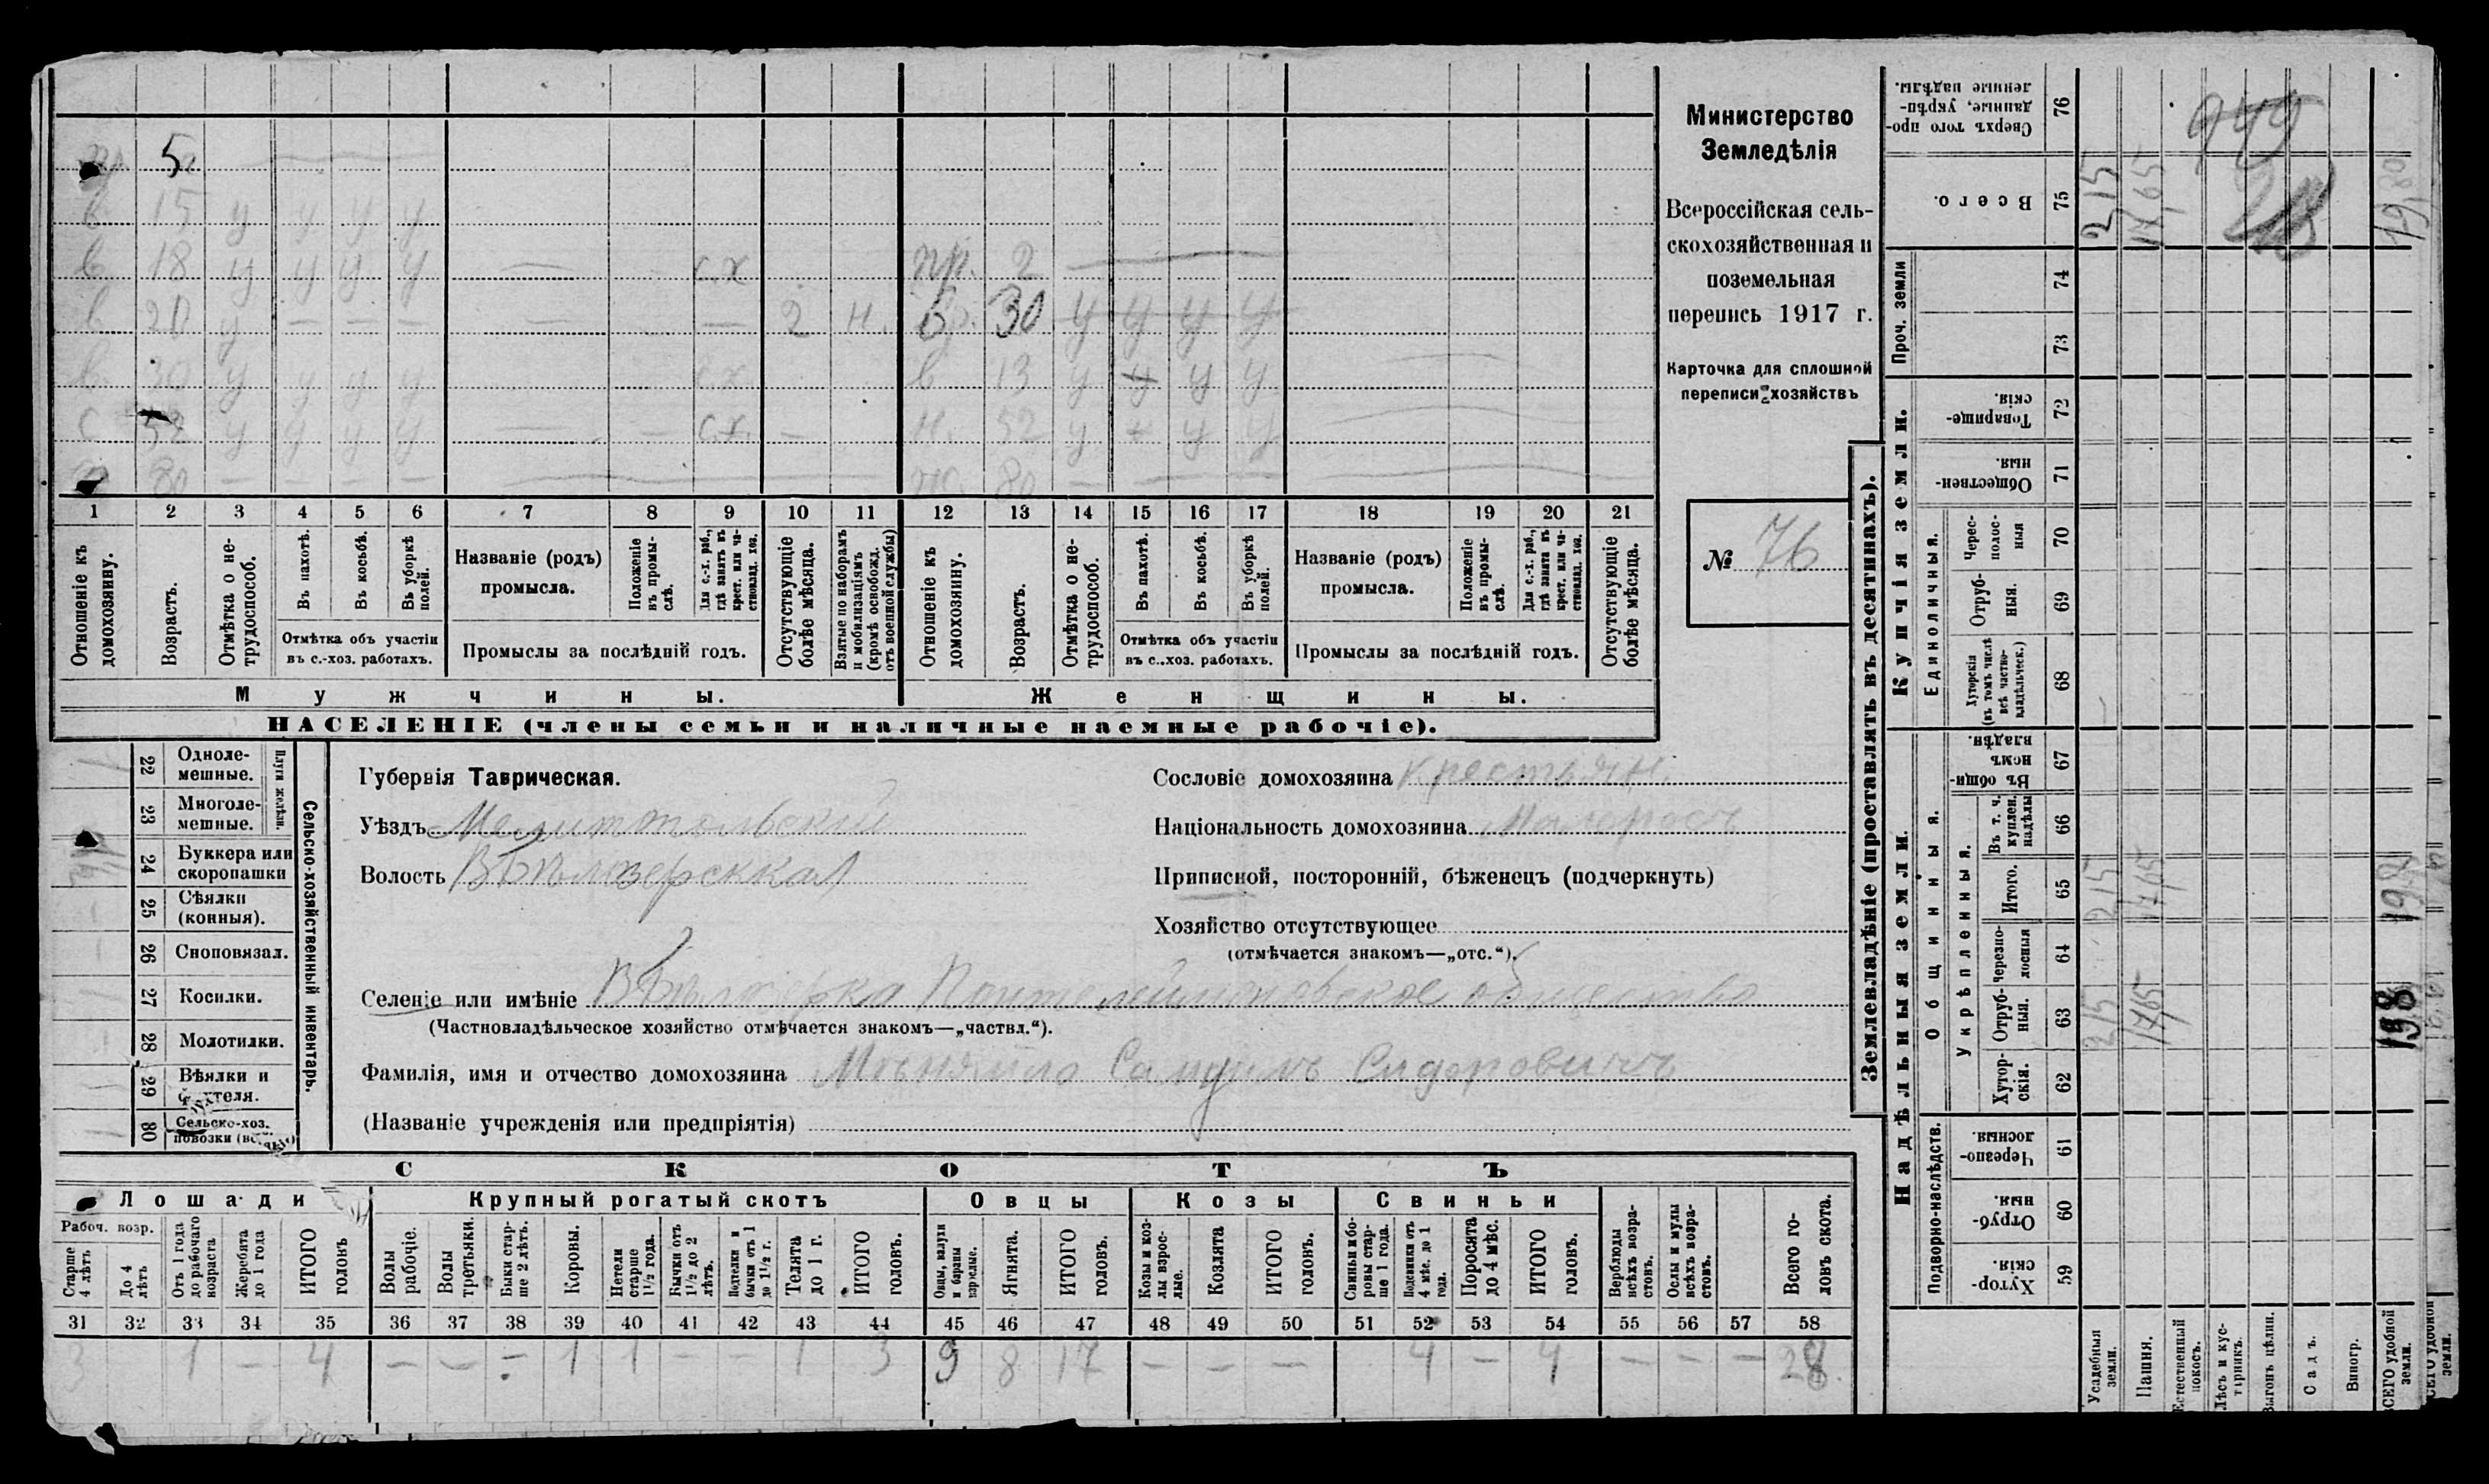 5
в 15 у у у у
в 18 у у у у — с.х пр. 2
в 20 у — — — — — 2 н. 30 у у у у
в. 30 у у у у с.х. в 13 у у у у
с 52 у у у у — — с.х. — н. 52 у у у у
80 — — — — 80 —
1 2 3 4 5 6 7 8 9 10 11 12 13 14 15 16 17 18 19 20 21
Отношеніе къ домохозяину.
Возрастъ.
Отмѣтка о не-трудоспособ.
Въ пахотѣ.
Въ косьбѣ.
Въ уборкѣ полей.
Отмѣтка объ участіи
въ с.-хоз. работахъ.
Названіе (родъ)
промысла.
Положеніе въ промы-слѣ.
Для с.-х. раб., гдѣ занятъ въ крест. или ча-стновлад. хоз.
Промыслы за послѣдній годъ.
Отсутствующіе болѣе мѣсяца.
Взятые по наборамъ и мобилизаціямъ (кромѣ освобожд. отъ военной службы)
Отношеніе къ домохозяину.
Возрастъ.
Отмѣтка о не-трудоспособ.
Въ пахотѣ.
Въ косьбѣ.
Въ уборкѣ полей.
Отмѣтка объ участіи
въ с..хоз. работахъ.
Названіе (родъ)
промысла.
Положеніе въ промы-слѣ.
Для с.-х. раб., гдѣ занята въ крест. или ча-стновлад. хоз.
Промыслы за послѣдній годъ.
Отсутствующіе болѣе мѣсяца.
Мужчины.
Женщины.
НАСЕЛЕНІЕ (члены семьи и наличные наемные рабочіе).
Министерство
Земледѣлія
Всероссійская сель-
скохозяйственная и
поземельная
перепись 1917 г.
Карточка для сплошной
переписи хозяйствъ
№ 76
22 Одноле-мешные.
23 Многоле-мешные.
Плуги желѣзн.
24 Буккера или скоропашки
25 Сѣялки (конныя).
26 Сноповязал.
27 Косилки.
28 Молотилки.
29 Вѣялки и
80 Сельско-хоз.
повозки
Сельско-хозяйственный инвентарь.
Губернія Таврическая.
Уѣздъ Мелитопольскій
Волость Бѣлозерская
Селеніе или имѣніе Бѣлозерка Пантелеймоновское общество
(Частновладѣльческое хозяйство отмѣчается знакомъ—„частвл.“).
Фамилія, имя и отчество домохозяина Самуилъ Сидоровичъ
(Названіе учрежденія или предпріятія)
Сословіе домохозяина крестьян.
Національность домохозяина Малороссъ
Приписной, посторонній, бѣженецъ (подчеркнуть)
Хозяйство отсутствующее
(отмѣчается знакомъ—„отс.“).
СКОТЪ
Лошади
Крупный рогатый скотъ
Овцы
Козы
Свиньи
Рабоч. возр.
Старше 4 лѣтъ
До 4 лѣтъ
Отъ 1 года до рабочаго возраста
Жеребята до 1 года
ИТОГО головъ
Волы рабочіе.
Волы третьяки.
Быки стар-ше 2 лѣтъ.
Коровы.
Нетели старше 1½ года.
Бычки отъ 1½ до 2 лѣтъ.
Подтелки и бычки отъ 1 до 1½ г.
Телята до 1 г.
ИТОГО головъ.
Овцы, валухи и бараны взрослые.
Ягнята.
ИТОГО головъ.
Козы и коз-лы взрос-лые.
Козлята
ИТОГО головъ.
Свиньи и бо-ровы стар-ше 1 года.
Подсвинки отъ 4 мѣс. до 1 года.
Поросята до 4 мѣс.
ИТОГО головъ.
Верблюды всѣхъ возра-стовъ.
Ослы и мулы всѣхъ возра-стовъ.
Всего го-ловъ скота.
31 32 33 34 35 36 37 38 39 40 41 42 43 44 45 46 47 48 49 50 51 52 53 54 55 56 57 58
3 1 — 4 — — — 1 1 — — 1 3 9 8 17 — — — 4 — 4 — — — 28
Землевладѣніе (проставлять въ десятинахъ).
Надѣльныя земли.
Купчія земли.
Проч. земли
Подворно-наслѣдств.
Общинныя.
Укрѣпленныя.
Единоличныя.
Сверхъ того про-данные, укрѣп-ленные надѣлы. 76
Всего. 75
74
73
Товарище-скія. 72
Обществен-ныя. 71
Черес-полос-ныя 70
Отруб-ныя. 69
Хуторскія (въ томъ числѣ всѣ частно-владѣльческ.) 68
Въ общи-номъ владѣн. 67
Въ т. ч. куплен. надѣлы 66
Итого. 65
Черезпо-лосныя 64
Отруб-ныя. 63
Хутор-скія. 62
Черезпо-лосныя. 61
Отруб-ныя. 60
Хутор-скія. 59
Усадебныя земли.
Пашня.
Естественный покосъ.
Лѣсъ и кус-тарникъ.
Выгонъ цѣлин.
Садъ.
Виногр.
ВСЕГО удобной земли.
949
215
17,65
19,80
215
17,65
198
215
17,65
198